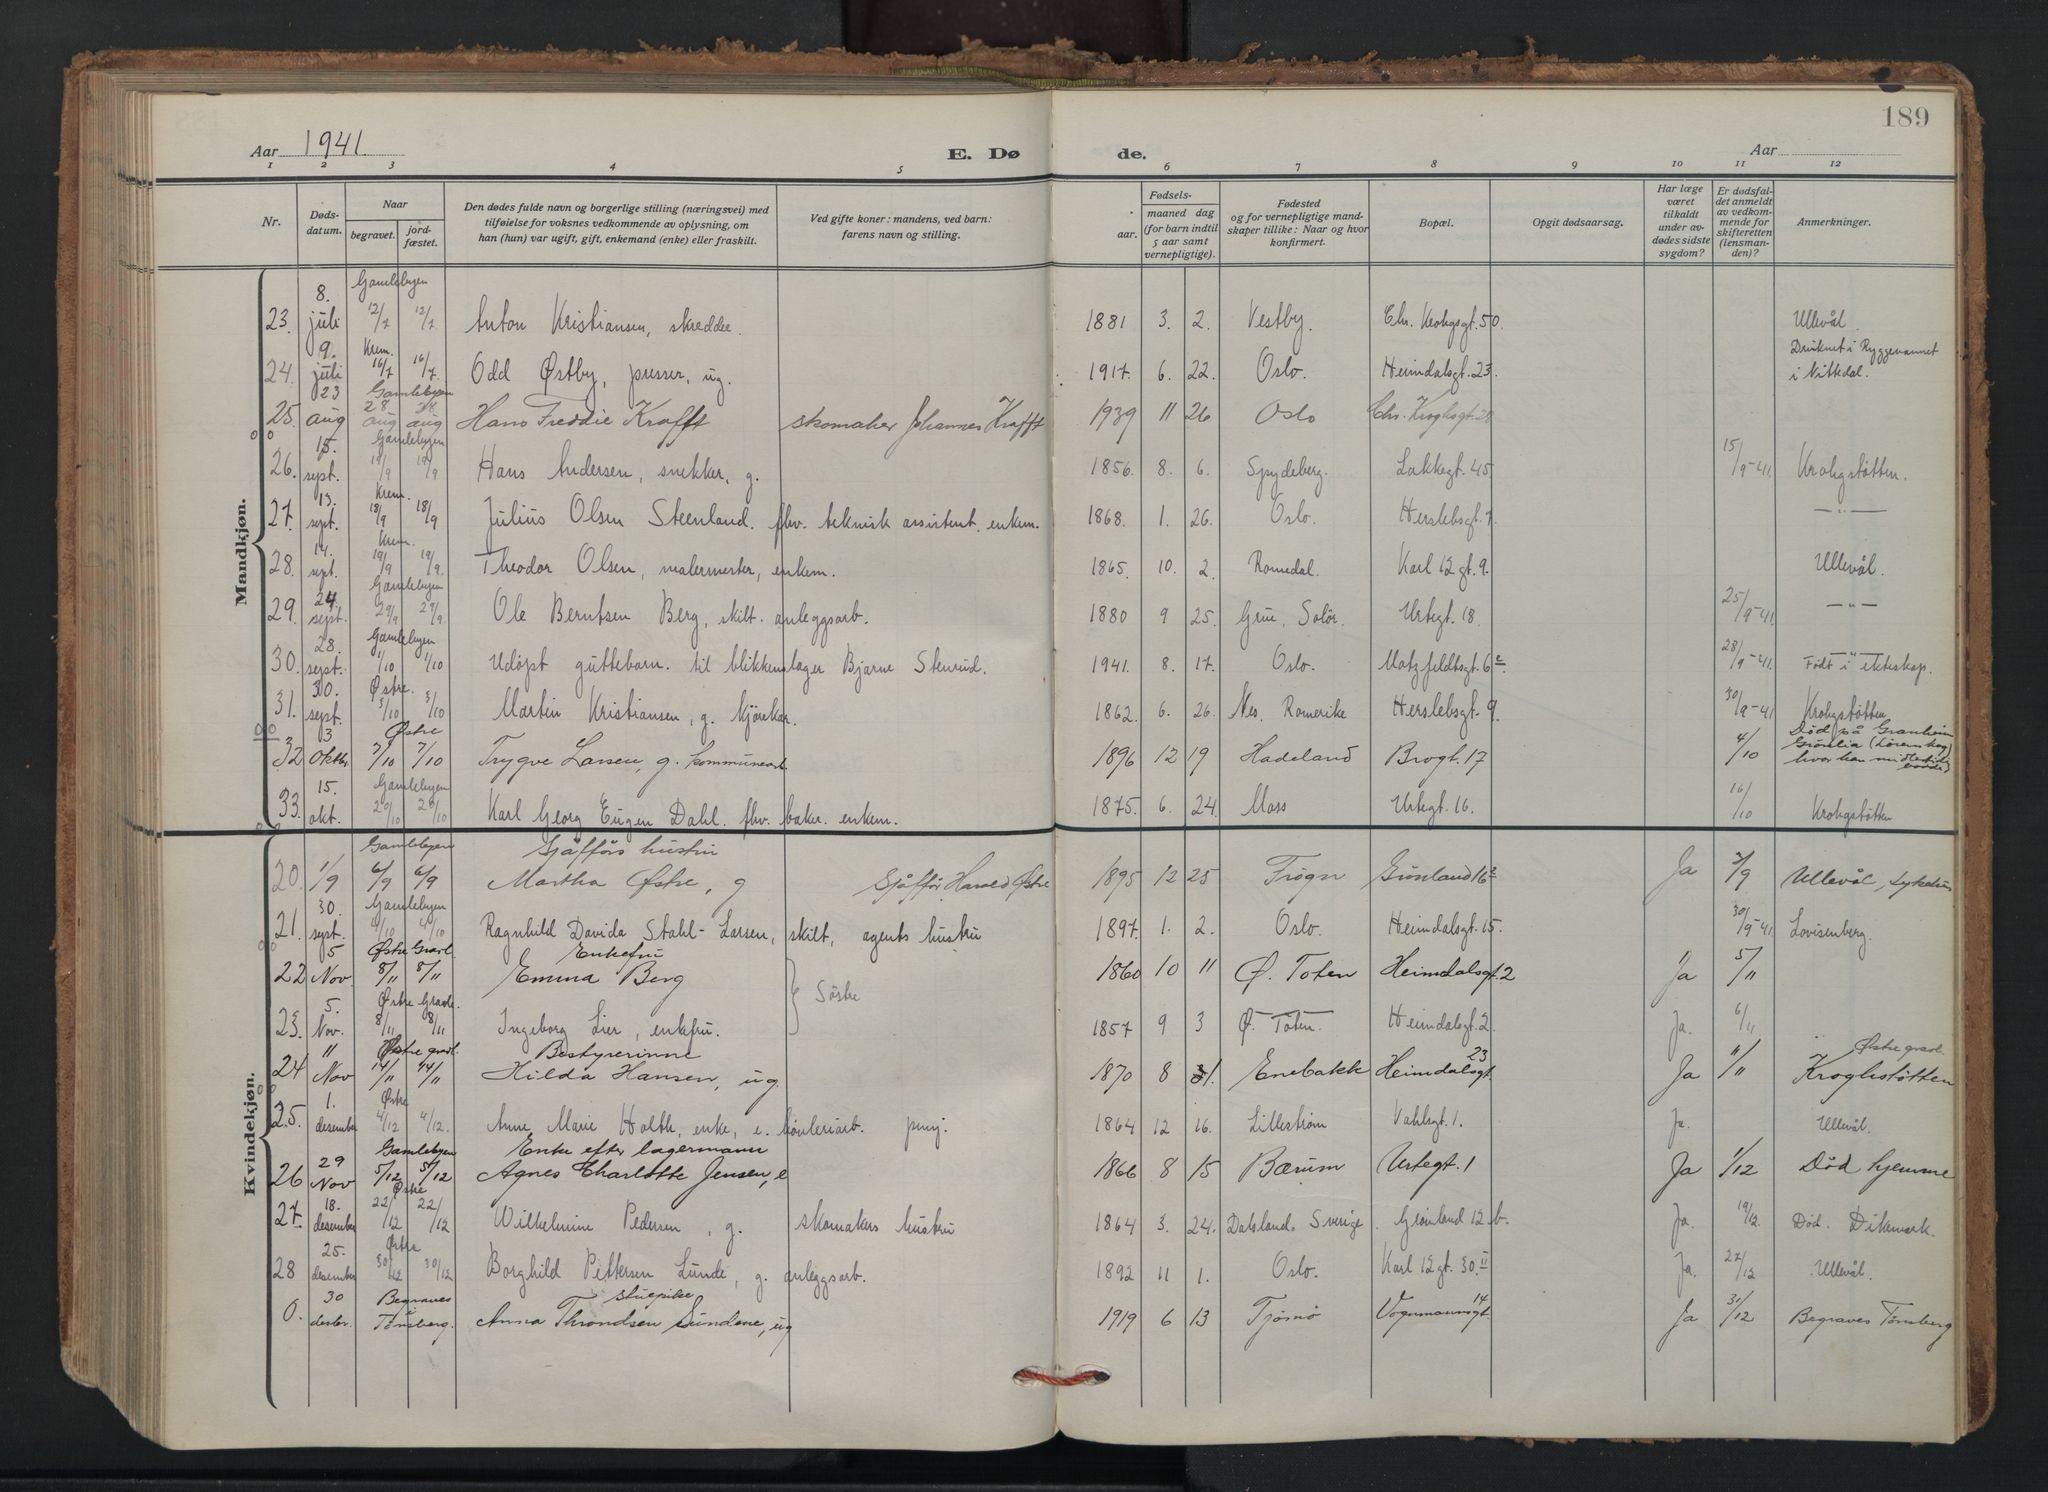 189
Aar 1941. E. Dø de. Aar
1 2 3 4 5 6 7 8 9 10 11 12
Nr. Døds-datum. Naar begravet. jord-fæstet. Den dødes fulde navn og borgerlige stilling (næringsvei) med tilføielse for voksnes vedkommende av oplysning, om han (hun) var ugift, gift, enkemand (enke) eller fraskilt. Ved gifte koner: mandens, ved barn: farens navn og stilling. Fødsels- aar. maaned dag (for barn indtil 5 aar samt vernepligtige). Fødested og for vernepligtige mandskaper tillike: Naar og hvor konfirmert. Bopæl. Opgit dødsaarsag. Har læge været tilkaldt under avdødes sidste sygdom? Er dødsfaldet anmeldt av vedkommende for skifteretten (lensmanden)? Anmerkninger.
Mandkjøn.
23. 8. juli Gamlebyen 12/7 12/7 Anton Kristiansen, skredder. 1881 3. 2. Vestby. Chr. Krohgsgt. 50. Ullevål.
24. 9. juli Krem. 16/7 16/7. Odd Østby, presser, ug. 1917. 6. 22. Oslo. Heimdalsgt. 23. Druknet i Ryggevannet i Nittedal.
25. 23 aug Gamlebyen 28 aug 28 aug Hans Freddie Krafft skomaker Johannes Krafft 1939 11 26 Oslo Chr. Kroghsgt. 28
26. 15. sept. Gamlebyen 19/9 19/9 Hans Andersen, snekker, g. 1856. 8. 6. Spydeberg. Lakkegt. 45 15/9-41. Krohgstøtten.
27. 13. sept. Krem. 18/9 18/9 Julius Olsen Steenland. fhv. teknisk assistent. enkem. 1868. 1. 26. Oslo. Herslebsgt. 7. —"—
28. 14. sept. Krem. 19/9 19/9. Theodor Olsen, malermester, enkem. 1865. 10. 2. Romedal. Karl 12 gt. 9. Ullevål.
29. 24. sept. Gamlebyen 29/9 29/9. Ole Berntsen Berg, skilt. anleggsarb. 1880 9 25. Grue, Solör. Urtegt. 18. 25/9-41. —"—
30. 28. sept. Gamlebyen 1/10 1/10 Udøpt guttebarn. til blikkenslager Bjarne Stenrud. 1941. 8. 17. Oslo. Motzfeldtsgt. 6c 28/9-41. Født i ekteskap.
31. 30. sept. Østre. 3/10 3/10 Martin Kristiansen, g. kjørekar. 1862. 6. 26. Nes. Romerike Herslebsgt. 9. 30/9-41 Krohgstøtten
32 3 Oktbr Østre 7/10 7/10 Trygve Larsen, g. kommunearb 1896 12 19 Hadeland Brogt. 17 4/10 Død på Granheim Grønlia (Lørenskog) hvor han
33. 15. okt. Gamlebyen 20/10 20/10 Karl Georg Eugen Dahl. fhv. baker. enkem. 1875. 6. 24. Moss Urtegt. 16. 16/10 Krohgstøtten
Kvindekjøn.
20. 1/9 Gamlebyen 6/9 6/9 Sjåførs hustru
Martha Østre, g Sjåffør Harald Østre 1895 12 25 Frogn Grønland 16 Ja 2/9 Ullevål, Sykehus
21. 30. sept. Gamlebyen 4/10 4/10 Ragnhild Davida Stahl-Larsen, skilt, agents hustru 1897. 1. 2. Oslo. Heimdalsgt. 15. 30/9-41. Lovisenberg.
22 5 Nov Østre Gravl. 8/11 8/11 Enkefru
Emma Berg } Søstre 1860 10 11 Ø. Toten Heimdalsgt. 2 Ja 5/11
23. 5. Nov. Østre Gravl. 8/11 8/11 Ingeborg Lier, enkefru. 1857 9 3 Ø. Toten. Heimdalsgt. 2. Ja. 6/11
24 11 Nov Østre gravl. 14/11 14/11 Bestyrerinne
Hilda Hansen, ug. 1870 8 31. Enebakk Heimdalsgt 23 Ja 11/11 Østre gravl. Kroghstøtten
25. 1. desember Østre 4/12 4/12. Anne Marie Holth, enke, e. pensj. 1864 12 16. Lillestrøm Vahlsgt. 1. Ja. Ullevål.
26 29 Nov Gamlebyen 5/12 5/12 Enke efter lagermann
Agnes Charlotte Jensen, e 1866 8 15 Bærum Urtegt. 1 Ja 1/12 Død hjemme
27. 18. desember Østre 22/12 22/12 Wilhelmine Pedersen, g. skomakers hustru 1864 3. 24. Dalsland. Sverige. Grønland 12.b. Ja. 19/12. Død. Dikemark.
28 25. desember Østre 30/12 30/12 Borghild Pettersen Lunde, g. anleggsarb. 1892 11 1. Oslo. Karl 12 gt. 30.II Ja. 27/12 Ullevål.
0. 30 desbr. Begraves i Tønsberg. stuepike
Anna Throndsen Sundene, ug 1919 6 13 Tjømø Vognmannsgt. 14 Ja 31/12 Begraves Tønsberg